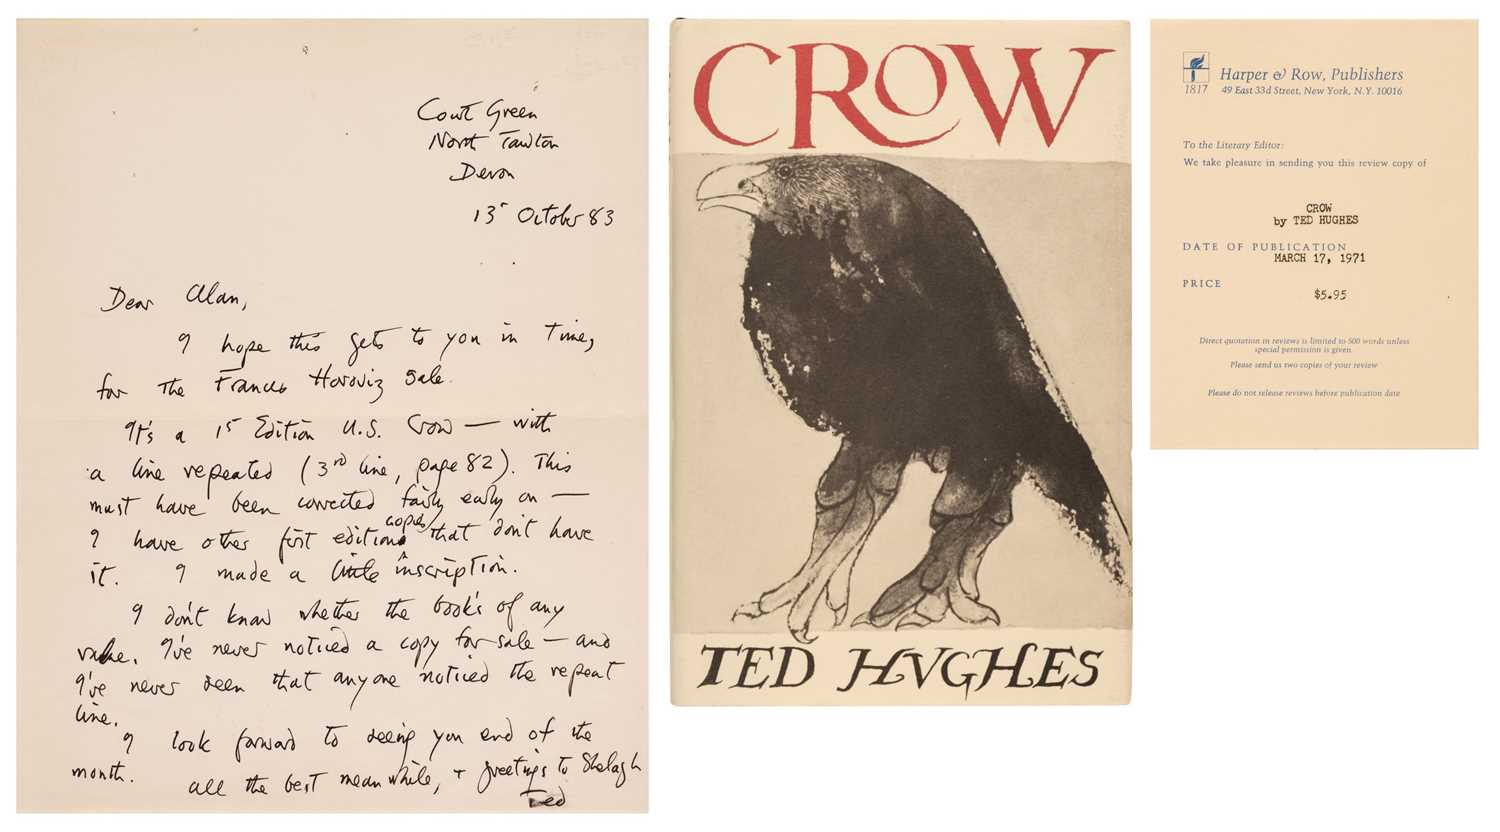 Court Green
North Tawton
Devon
13th October 83
Dear Alan,
I hope this gets to you in time,
for the Frances Horoviz Sale.
It's a 1st Edition U.S. Crow — with
a line repeated (3rd line, page 82). This
must have been corrected fairly early on —
I have other first edition copies that don't have
it. I made a little inscription.
I don't know whether the book's of any
value. I've never noticed a copy for sale — and
I've never seen that anyone noticed the repeat
line.
I look forward to seeing you end of the
month.
all the best meanwhile, + greetings to Shelagh
Ted
CROW
TED HVGHES
1817
Harper & Row, Publishers
49 East 33d Street, New York, N.Y. 10016
To the Literary Editor:
We take pleasure in sending you this review copy of
CROW
by TED HUGHES
DATE OF PUBLICATION
MARCH 17, 1971
PRICE
$5.95
Direct quotation in reviews is limited to 500 words unless
special permission is given.
Please send us two copies of your review
Please do not release reviews before publication date